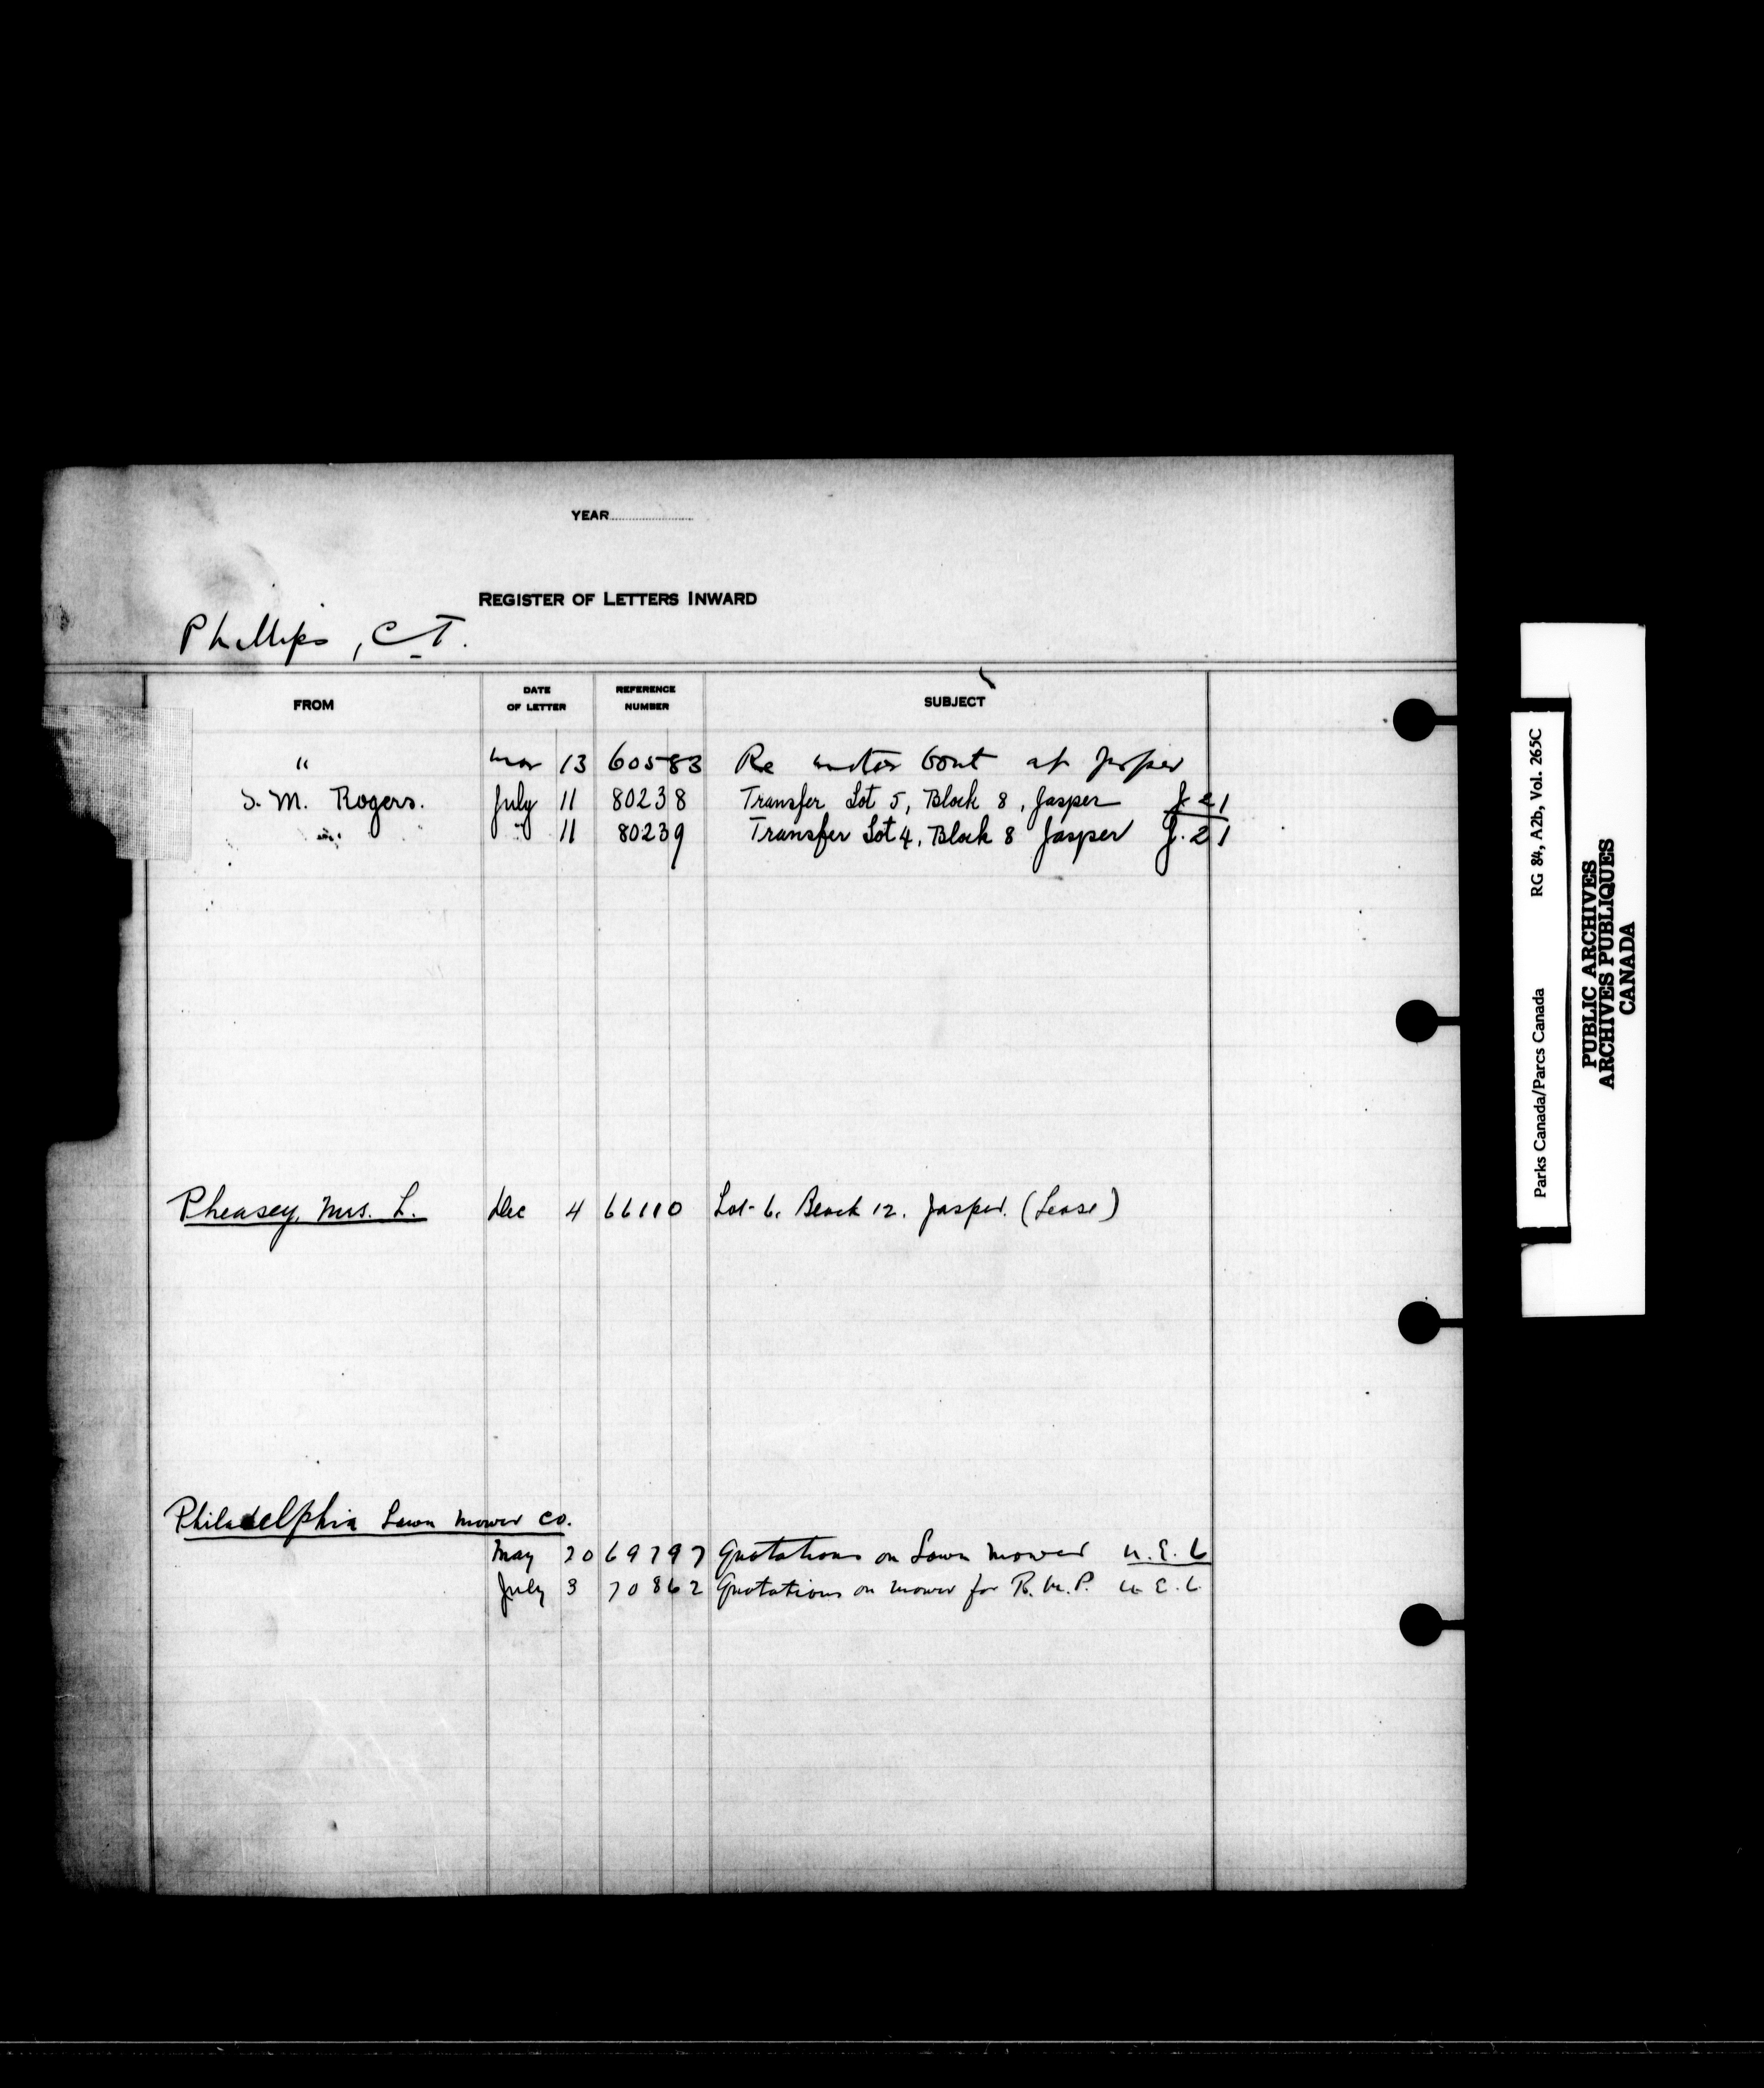 YEAR
REGISTER OF LETTERS INWARD
Phillips, C T.
FROM DATE OF LETTER REFERENCE NUMBER SUBJECT
" Mar 13 60583 Re motor at Jasper
S. M. Rogers. July 11 80238 Transfer Lot 5, Block 8, Jasper J. 21
" " 11 80239 Transfer Lot 4, Block 8 Jasper J. 21
Pheasey, Mrs. L. Dec 4 66110 Lot 6, Block 12. Jasper. (Lease)
Philadelphia Lawn Mower Co.
May 20 69797 Quotations on Lawn Mower U.E.6
July 3 70862 Quotations on mower for R.M.P. U.E.6
Parks Canada/Parcs Canada RG 84, A2b, Vol. 265C
PUBLIC ARCHIVES
ARCHIVES PUBLIQUES
CANADA